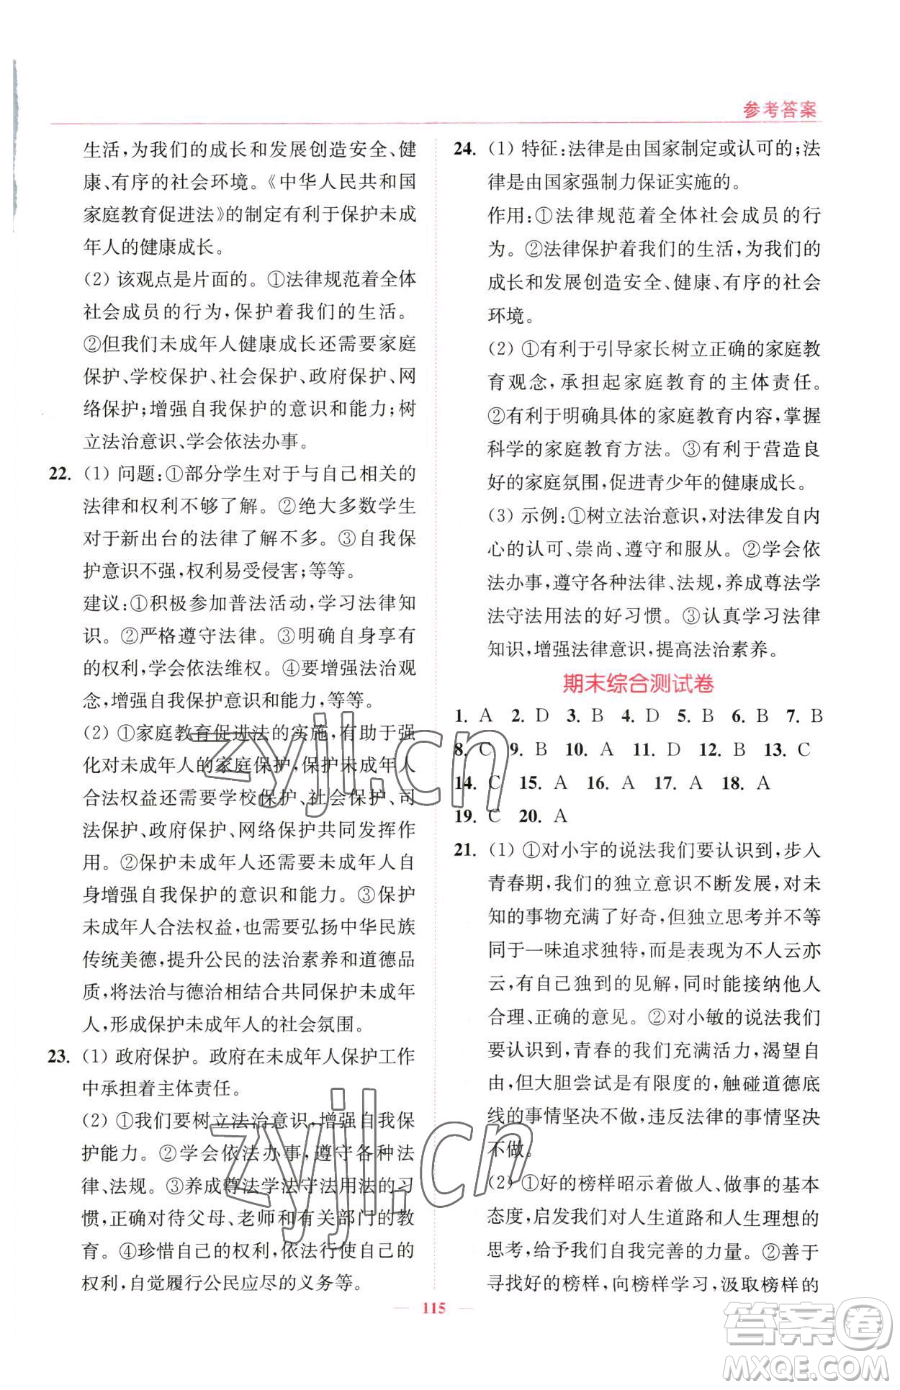 参考答案
生活,为我们的成长和发展创造安全、健
康、有序的社会环境。《中华人民共和国
家庭教育促进法》的制定有利于保护未成
年人的健康成长。
(2) 该观点是片面的。①法律规范着全体
社会成员的行为,保护着我们的生活。
②但我们未成年人健康成长还需要家庭
保护、学校保护、社会保护、政府保护、网
络保护;增强自我保护的意识和能力;树
立法治意识、学会依法办事。
22. (1) 问题:①部分学生对于与自己相关的
法律和权利不够了解。②绝大多数学生
对于新出台的法律了解不多。③自我保
护意识不强,权利易受侵害;等等。
建议:①积极参加普法活动,学习法律知
识。②严格遵守法律。③了解自身享有
的权利,学会依法维权。④要增强法治观
念,增强自我保护意识和能力,等等。
(2) ①家庭教育促进法的实施,有助于强
化对未成年人的家庭保护,保护未成年人
合法权益还需要学校保护、社会保护、司
法保护、政府保护、网络保护共同发挥作
用。②保护未成年人合法权益,未成年人自
身增强自我保护的意识和能力。③保护
未成年人合法权益,也需要弘扬中华民族
传统美德,提升公民的法治素养和道德品
质,将法治与德治相结合共同保护未成年
人,形成保护未成年人的社会氛围。
23. (1) 政府保护。政府在未成年人保护工作
中承担着主体责任。
(2) ①我们要树立法治意识,增强自我保
护能力。②学会依法办事,遵守各种法
律、法规。③养成尊法学法守法用法的习
惯,正确对待父母、老师和有关部门的教
育。④珍惜自己的权利,依法行使自己的
权利,自觉履行公民应尽的义务等。
24. (1) 特征:法律是由国家制定或认可的;法
律是由国家强制力保证实施的。
作用:①法律规范着全体社会成员的行
为。②法律保护着我们的生活,为我们的
成长和发展创造安全、健康、有序的社会
环境。
(2) ①有利于引导家长树立正确的家庭教
育观念,承担起家庭教育的主体责任。
②有利于明确具体的家庭教育内容,掌握
科学的家庭教育方法。③有利于营造良
好的家庭氛围,促进青少年的健康成长。
(3) 示例:①树立法治意识,对法律发自内
心的认可、崇尚、遵守和服从。②学会依
法办事,遵守各种法律、法规,养成尊法学
法守法用法的好习惯。③认真学习法律
知识,增强法律意识,提高法治素养。
期末综合测试卷
1. A 2. D 3. B 4. D 5. B 6. B 7. B
8. C 9. B 10. A 11. D 12. B 13. C
14. C 15. A 16. A 17. A 18. A
19. C 20. A
21. (1) ①对小宇的说法我们要认识到,步入
青春期,我们的独立意识不断发展,对未
知的事物充满了好奇,但独立思考并不等
同于一味追求独特,而是表现为不人云亦
云,有自己独到的见解,同时能接纳他人
合理、正确的意见。②对小敏的说法我们
要认识到,青春的我们充满活力,渴望自
由,但大胆尝试是有限度的,触碰道德底
线的事情坚决不做,违反法律的事情坚决
不做。
(2) ①好的榜样昭示着做人、做事的基本
态度,启发我们对人生道路和人生理想的
思考,给予我们自我完善的力量。②善于
寻找好的榜样,向榜样学习,汲取榜样的
115
zyjl.cn
zyjl.cn
答案圈
MXQE.COM